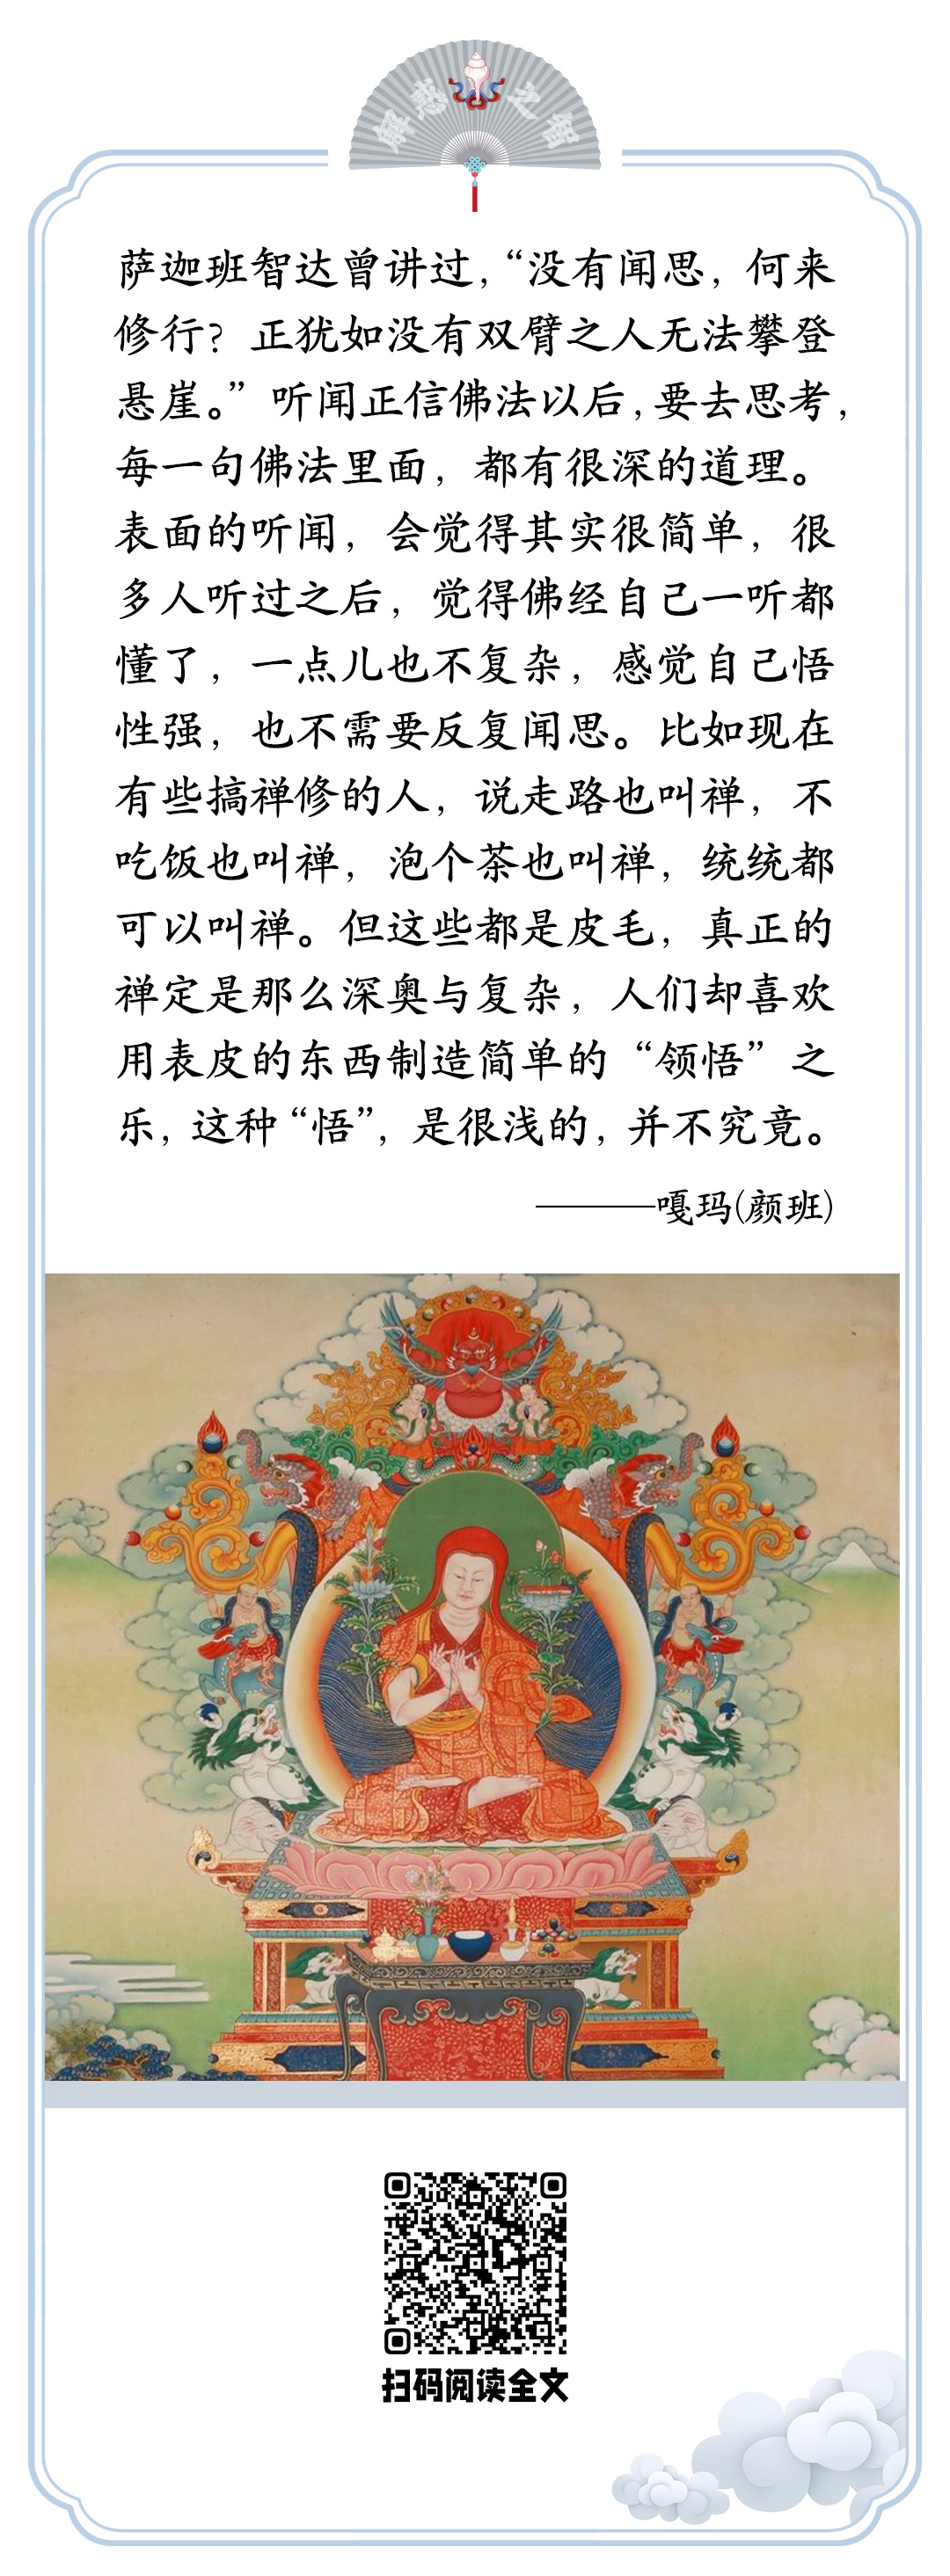 解惑之智
萨迦班智达曾讲过，“没有闻思，何来
修行？正犹如没有双臂之人无法攀登
悬崖。”听闻正信佛法以后，要去思考，
每一句佛法里面，都有很深的道理。
表面的听闻，会觉得其实很简单，很
多人听过之后，觉得佛经自己一听都
懂了，一点儿也不复杂，感觉自己悟
性强，也不需要反复闻思。比如现在
有些搞禅修的人，说走路也叫禅，不
吃饭也叫禅，泡个茶也叫禅，统统都
可以叫禅。但这些都是皮毛，真正的
禅定是那么深奥与复杂，人们却喜欢
用表皮的东西制造简单的“领悟”之
乐，这种“悟”，是很浅的，并不究竟。
———嘎玛(颜班)
扫码阅读全文